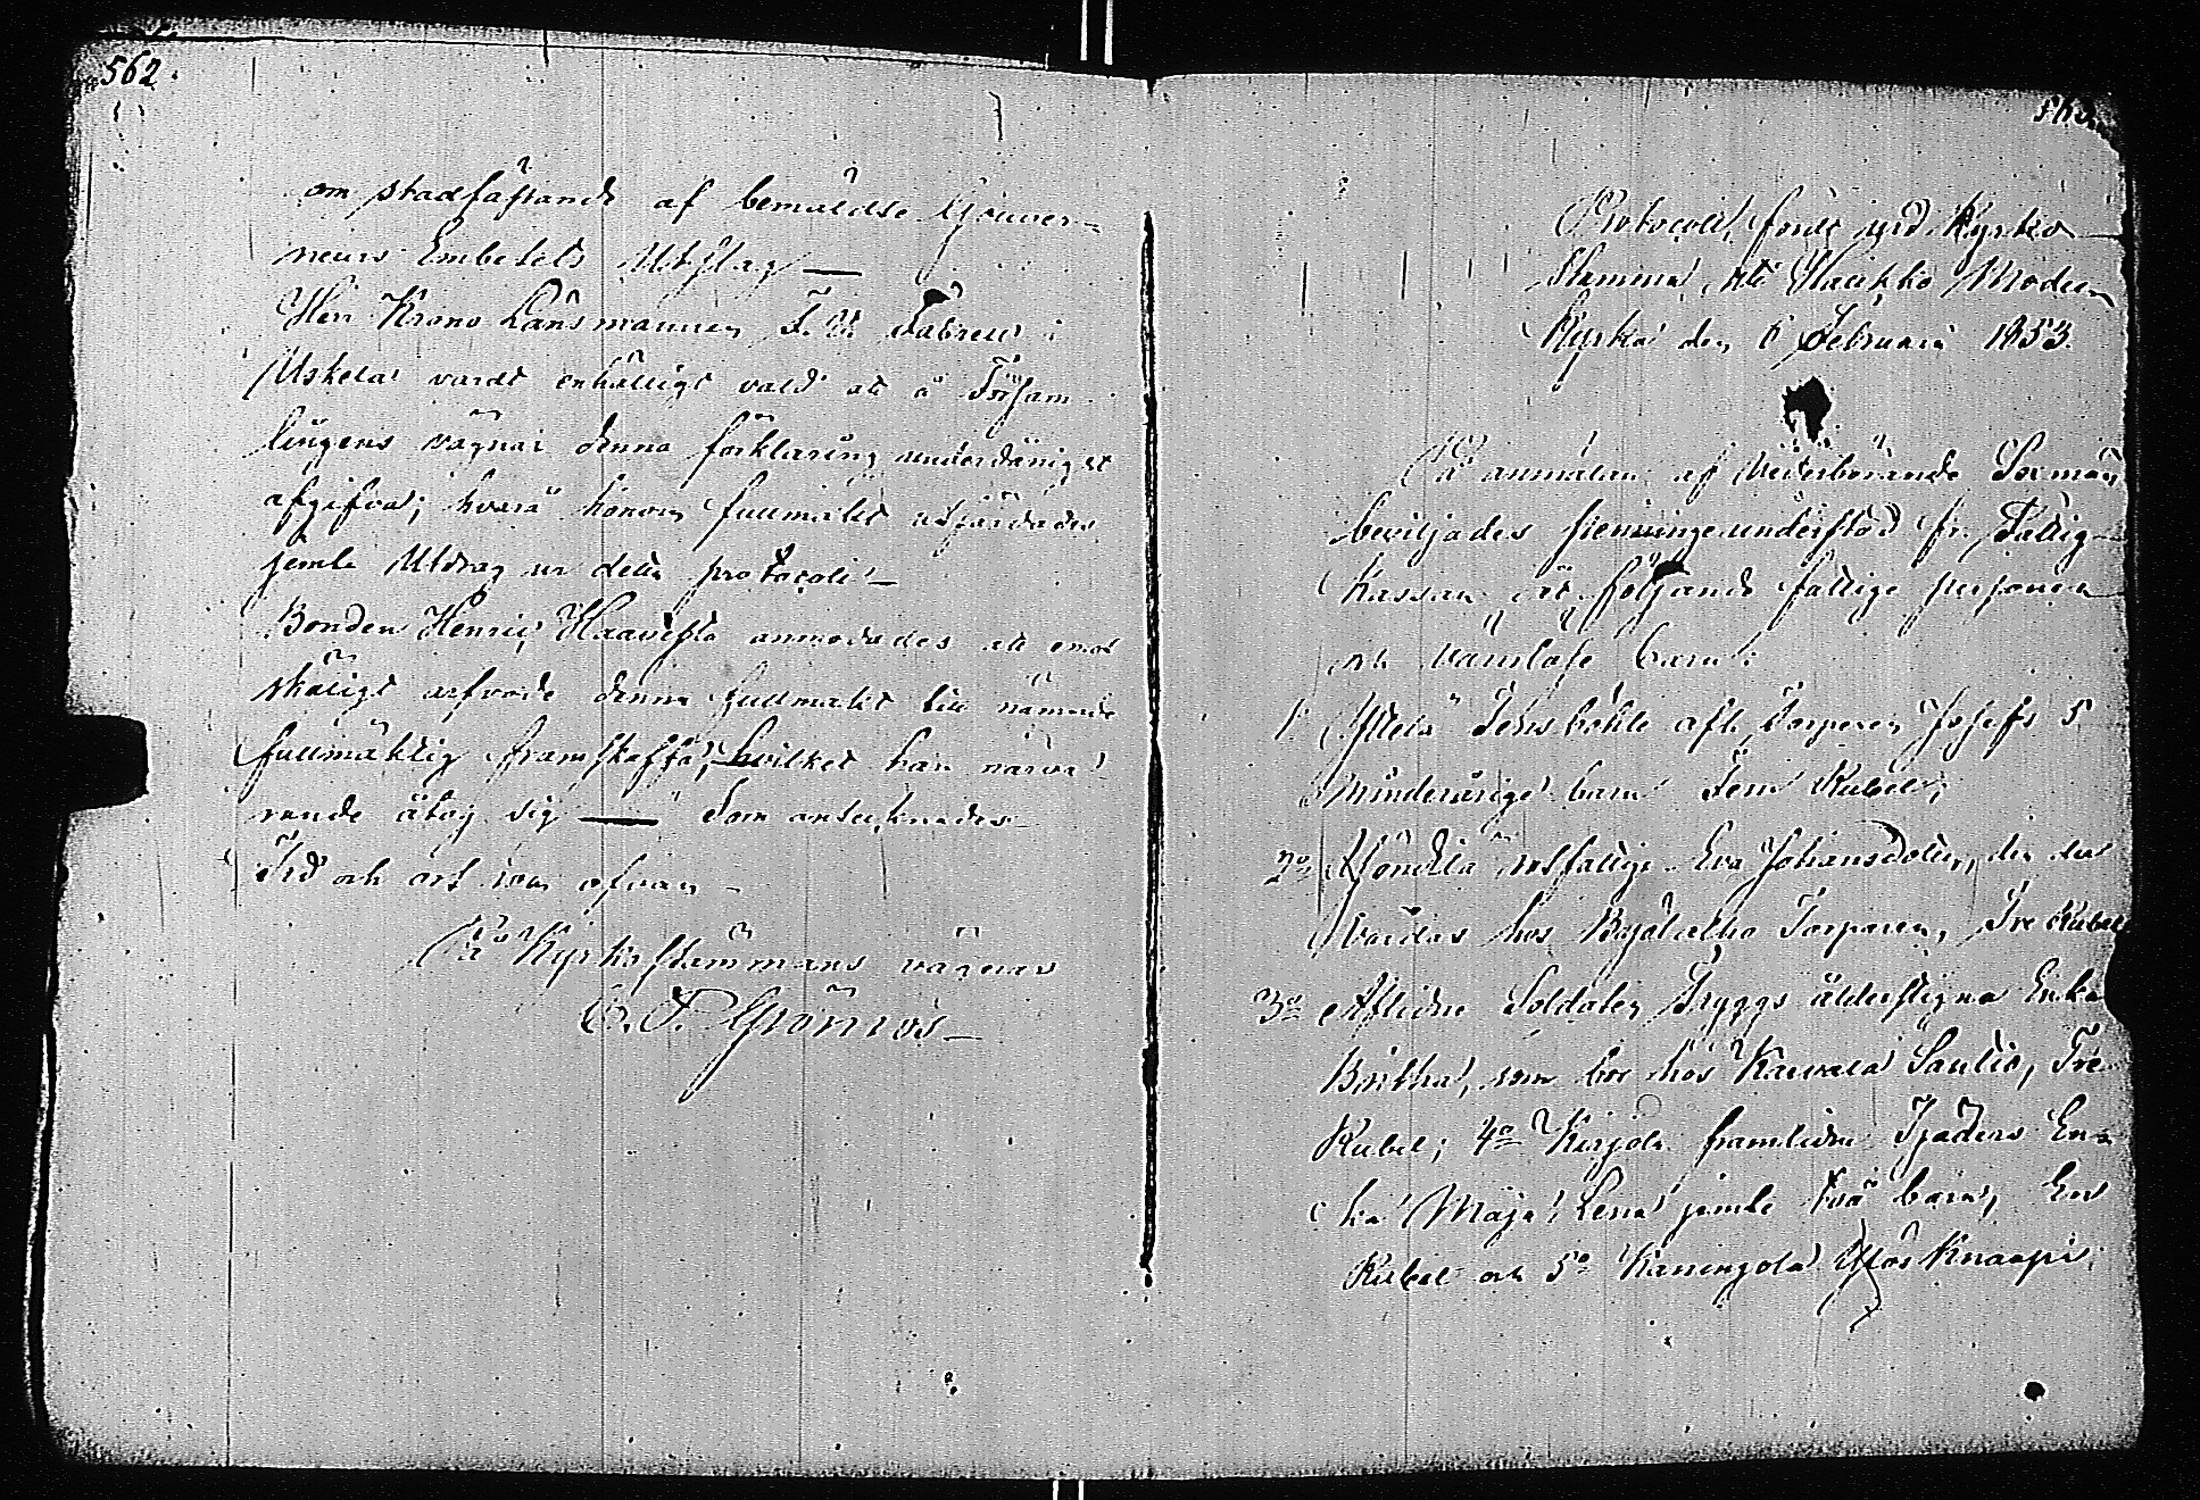 562.
om stadfästande af bemäldte Gouver-
neurs Embetets Utslag —
Herr Krono Länsmannen F. W. Fabreus i
Uskela vardt enhälligt vald att å Församl-
lingens vägnar denna förklaring underdånigst
afgifva; hvarå honom fullmakt utfärdades
jemte Utdrag ur detta protocoll —
Bonden Henric Haavisto anmodades att emot
skäligt arfvode denna fullmakt till nämnde
fullmäktig framskaffa, hvilket han närva-
rande åtog sig — Som antecknades
Tid och ort som ofvan —
På Kyrkostämmans vägnar
C. F. Grönroos —
563.
Protocoll, fördt vid Kyrko-
stämma uti Halikko Moder
Kyrka den 6 Februarii 1853.
På anmälan af Vederbörande Sexmän
beviljades penningeunderstöd fr. Fattig-
Kassan åt följande fattige personer
och värnlöse barn:
1. aflr Torparen Josefs 5
minderårige barn Fem Rubel;
2o utfattige Eva Johansdotter, der
vårdas hos Torparen, Tre Rubel
3o Aflidne Soldaten Tryggs älderstigna Enka
Biritha, som bor hos Kaivala Saulio, Tre
Rubel; 4o Kirjola framlidne Tjäders En-
ka Maja Lena jemte två barn, En
Rubel och 5o Kaningola Hos Knaapi